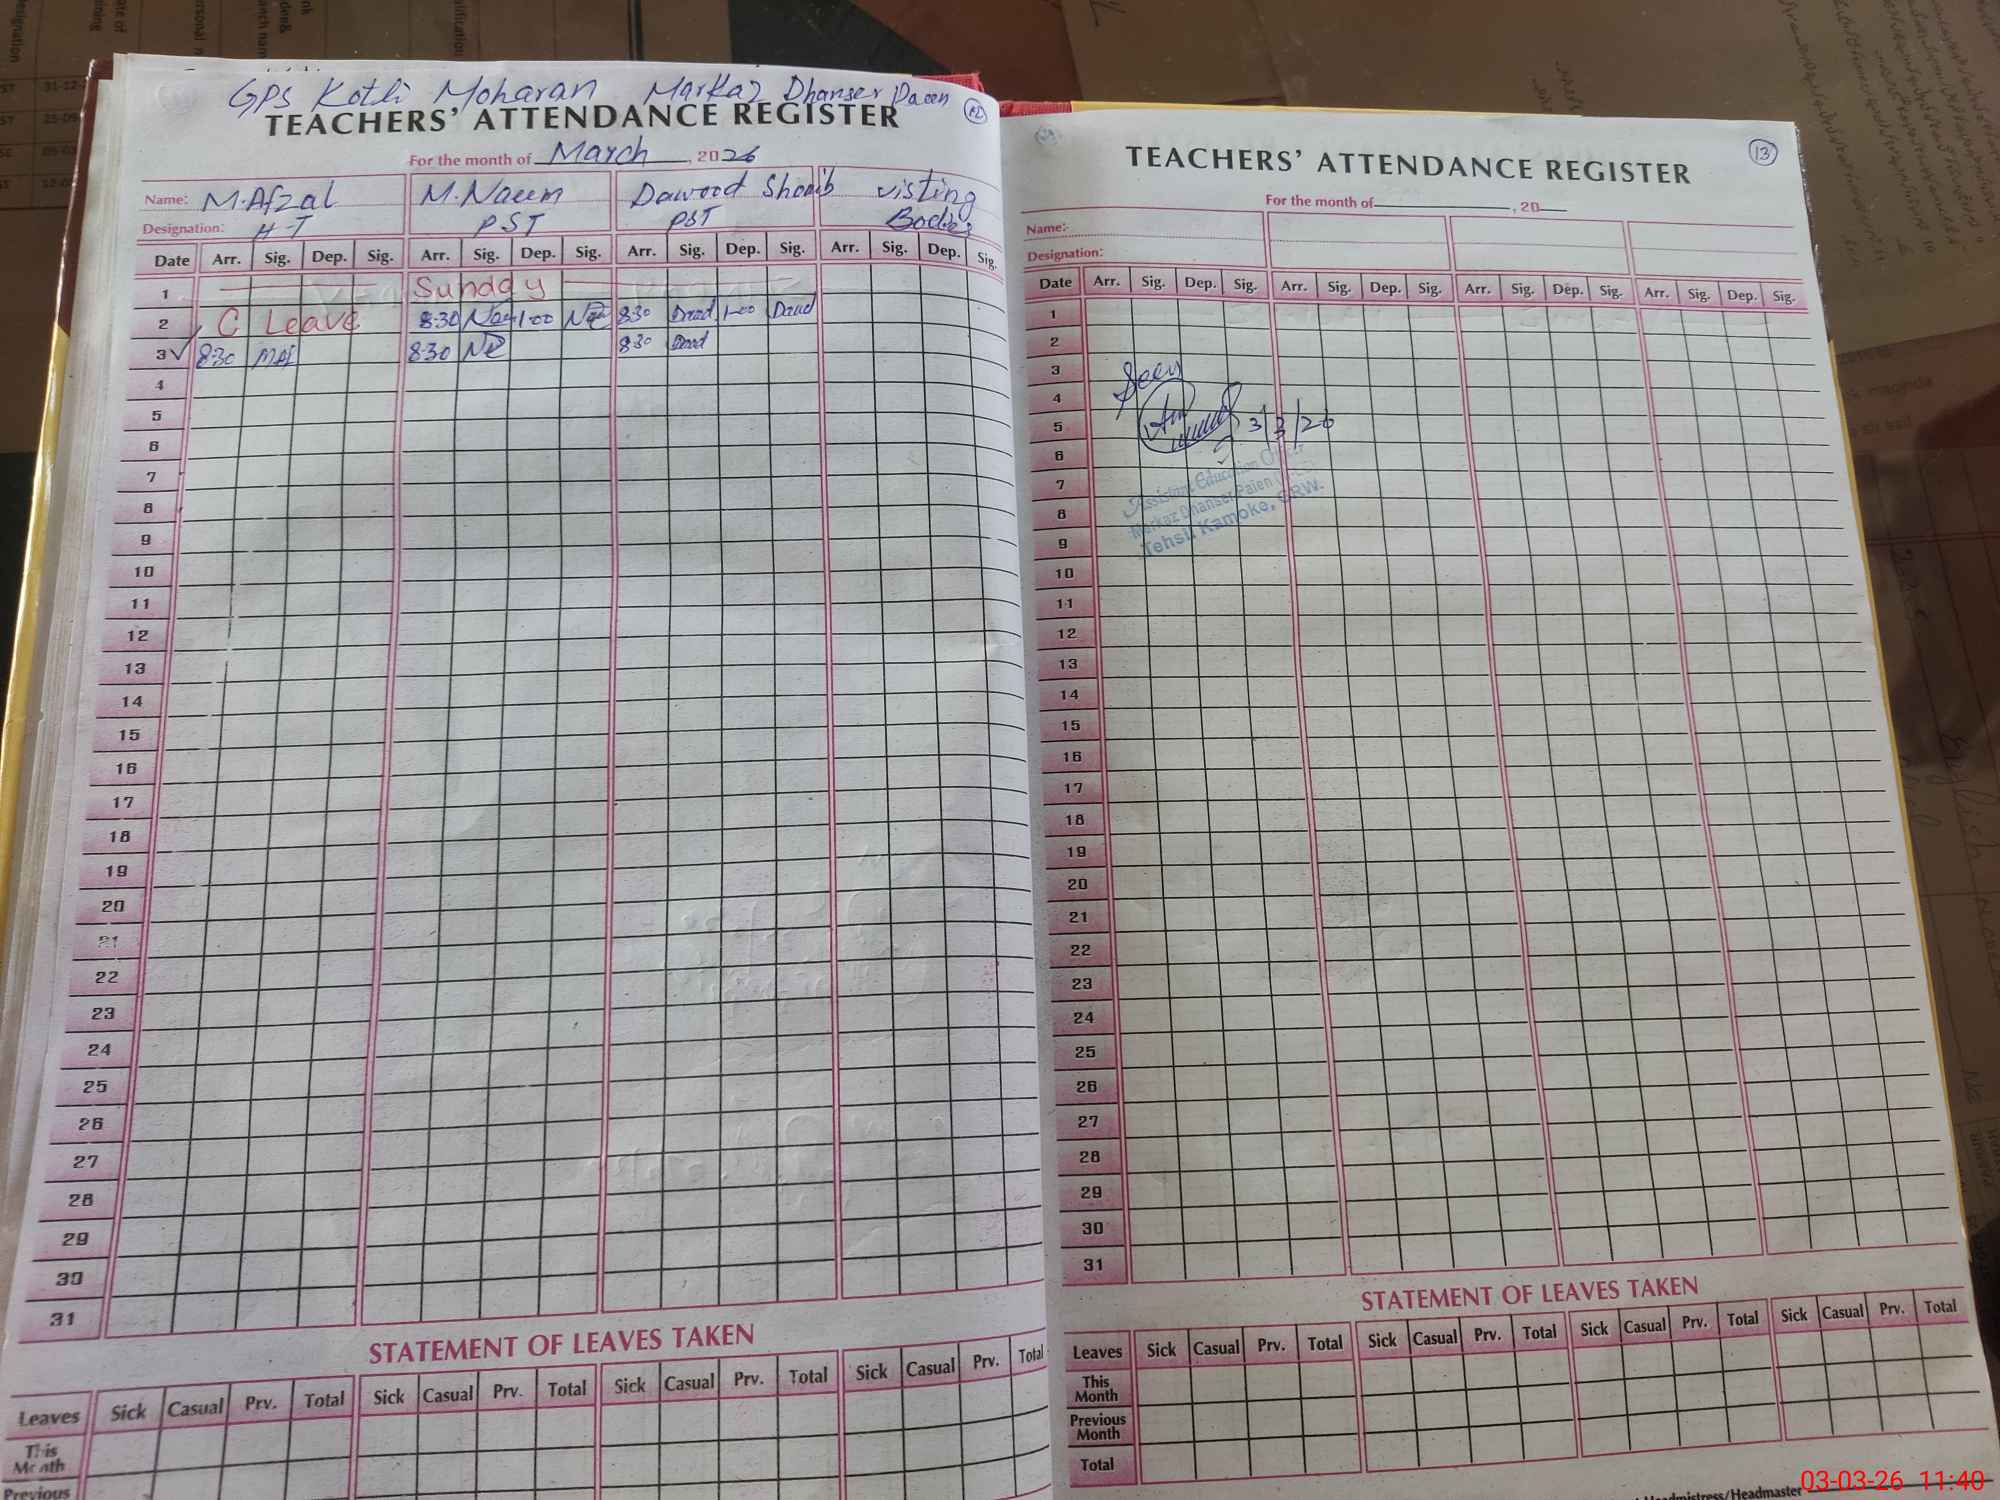 GPS Kotli Moharan Markaz Dhanser Paeen
12
TEACHERS' ATTENDANCE REGISTER
For the month of March, 2026
Name: M.Afzal M.Naeem Dawood Shoaib visting
Designation: H-T PST PST Bodies
Date Arr. Sig. Dep. Sig. Arr. Sig. Dep. Sig. Arr. Sig. Dep. Sig. Arr. Sig. Dep. Sig.
1 Sunday
2 C Leave 8:30 1-00 8:30 1-00
3 8:30 8:30 8:30
4
5
6
7
8
9
10
11
12
13
14
15
16
17
18
19
20
21
22
23
24
25
26
27
28
29
30
31
STATEMENT OF LEAVES TAKEN
Leaves Sick Casual Prv. Total Sick Casual Prv. Total Sick Casual Prv. Total Sick Casual Prv. Total
This
Month
Previous
13
TEACHERS' ATTENDANCE REGISTER
For the month of , 20
Name:
Designation:
Date Arr. Sig. Dep. Sig. Arr. Sig. Dep. Sig. Arr. Sig. Dep. Sig. Arr. Sig. Dep. Sig.
1
2
3
4
5
6
7
8
9
10
11
12
13
14
15
16
17
18
19
20
21
22
23
24
25
26
27
28
29
30
31
Seen
3/3/26
Assistant Education Officer
Markaz Dhanser Paien
Tehsil Kamoke, GRW.
STATEMENT OF LEAVES TAKEN
Leaves Sick Casual Prv. Total Sick Casual Prv. Total Sick Casual Prv. Total Sick Casual Prv. Total
This
Month
Previous
Month
Total
Headmistress/Headmaster
03-03-26 11:40